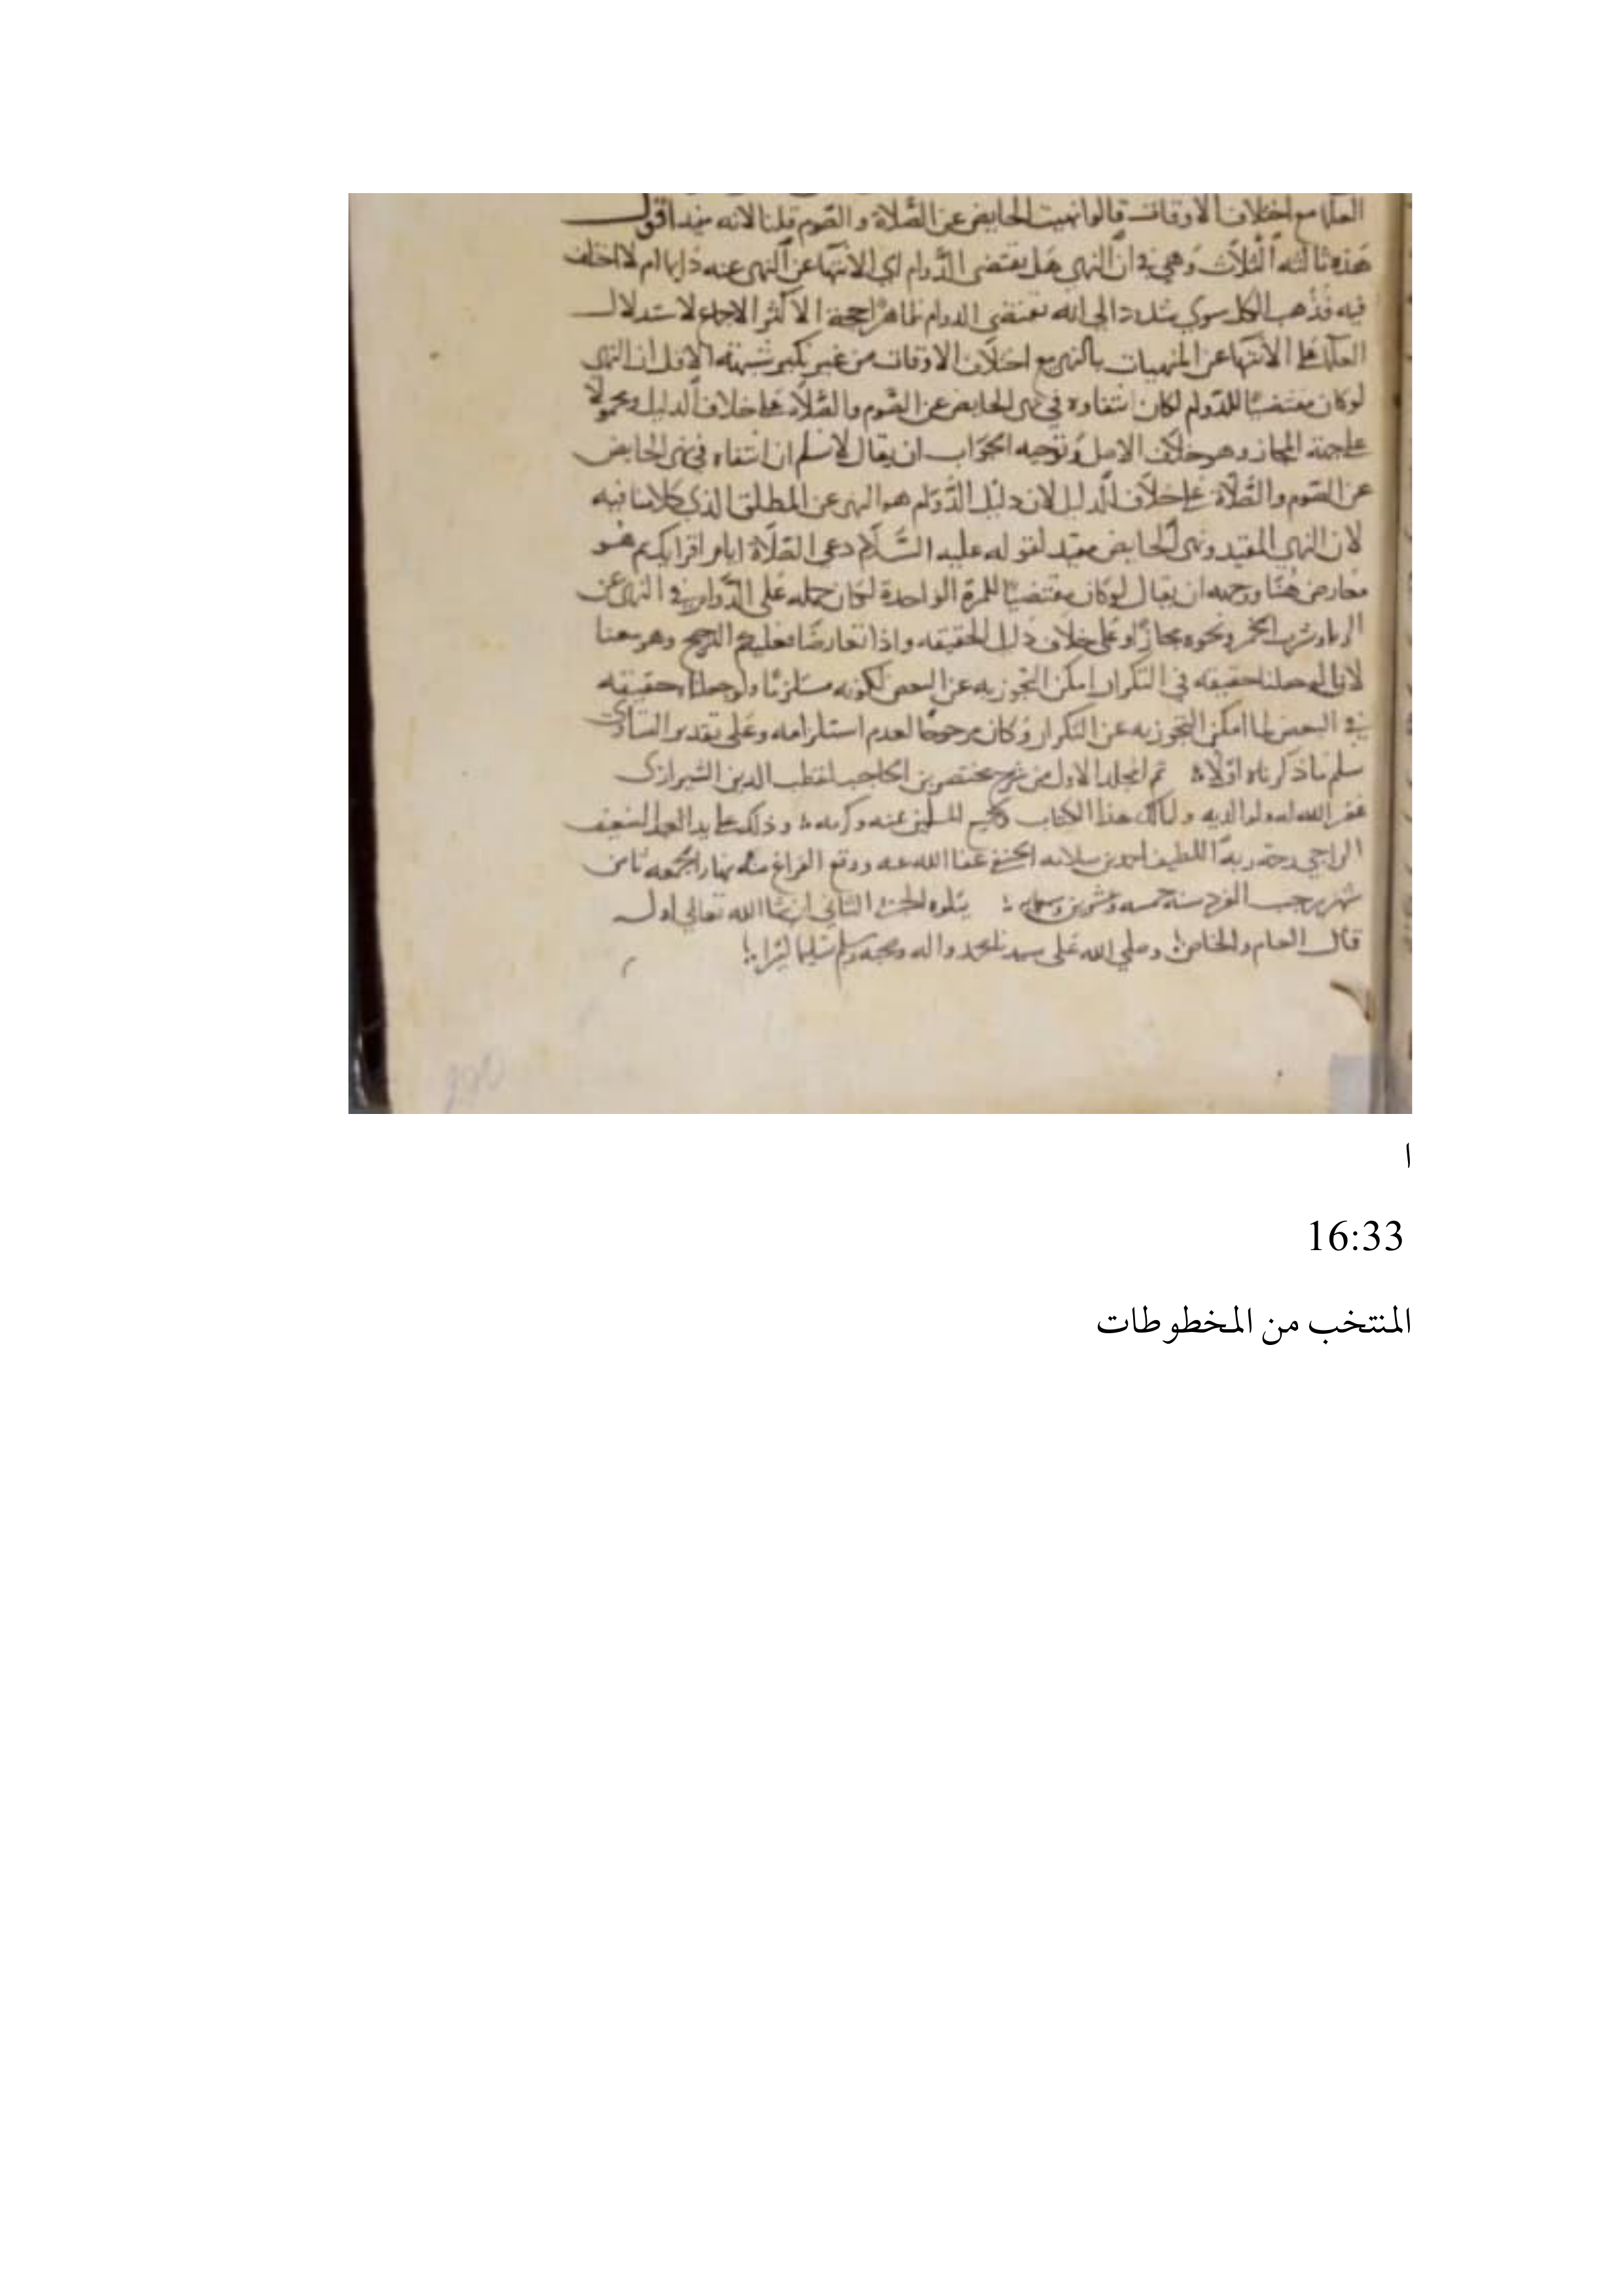 العلما مع اختلاف الاوقات قالوا نهيت الحايض عن الصلاة والصوم قلنا لانه مقيد اقول
هذه ثالثة الثلاث وهي في ان النهي هل يقتضي الدوام اي الانتها عن النهي عنه دايما ام لا اختلف
فيه فذهب الكل سوي الى انه يقتضي الدوام ظاهرا حجة الاكثر الاجماع لاستدلال
العلما على الانتها عن المنهيات بالنهي مع اختلاف الاوقات من غير نكير شبهة الاقل ان النهي
لو كان مقتضيا للدوام لكان انتفاوه في نهي الحايض عن الصوم والصلاة على خلاف الدليل ومحمولا
على جهة المجاز وهو خلاف الاصل وتوجيه الجواب ان يقال لا نسلم ان انتفاه في نهي الحايض
عن الصوم والصلاة على خلاف الدليل لان دليل الدوام هو النهي عن المطلق الذي كلامنا فيه
لان النهي المقيد ونهي الحايض مقيد لقوله عليه السلام دعي الصلاة ايام اقرايك ثم هو
معارض هنا وجهه ان يقال لو كان مقتضيا للمرة الواحدة لكان حمله على الدوام في النهي عن
الربا وشرب الخمر ونحوه مجازا وعلى خلاف دليل الحقيقه واذا تعارضا فعليكم الترجيح وهو معنا
لانا لو جعلنا حقيقه في التكرار امكن التجوز به عن البعض لكونه مستلزما ولو جعلناه حقيقه
في البعض لما امكن التجوز به عن التكرار وكان مرجوحا لعدم استلزامه وعلى تقدير التساوي
سلم ما ذكرناه اولا تم المجلد الاول من شرح مختصر بن الحاجب لقطب الدين الشيرازي
غفر الله له ولوالديه ولمالك هذا الكتاب ولجميع المسلمين بمنه وكرمه وذلك على يد العبد الضعيف
الراجي رحمة ربه اللطيف احمد بن سلامه الحنفي عفا الله عنه ووقع الفراغ منه نهار الجمعه ثامن
شهر رجب الفرد سنة خمسه وعشرين وسبعمايه يتلوه الجزء الثاني ان شا الله تعالى اوله
قال العام والخاص وصلي الله على سيدنا محمد واله وصحبه وسلم تسليما كثيرا
ا
16:33
المنتخب من المخطوطات